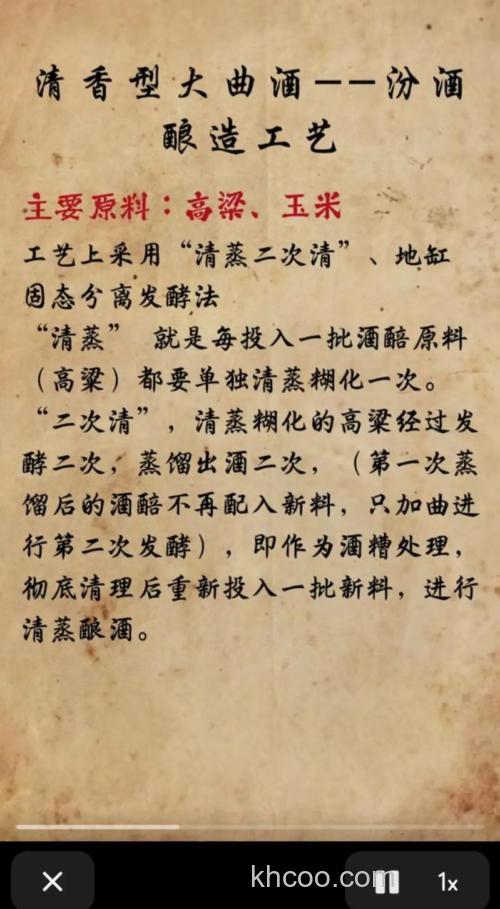 清香型大曲酒——汾酒
酿造工艺
主要原料：高粱、玉米
工艺上采用“清蒸二次清”、地缸
固态分离发酵法
“清蒸” 就是每投入一批酒醅原料
（高粱）都要单独清蒸糊化一次。
“二次清”，清蒸糊化的高粱经过发
酵二次，蒸馏出酒二次，（第一次蒸
馏后的酒醅不再配入新料，只加曲进
行第二次发酵），即作为酒糟处理，
彻底清理后重新投入一批新料，进行
清蒸酿酒。
khcoo.com
1x